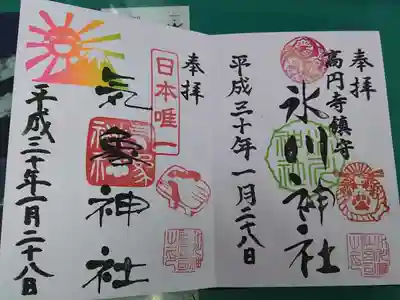 奉拝
高円寺鎮守
氷川神社
平成三十年一月二十八日
奉拝
日本唯一
気象神社
平成三十年一月二十八日